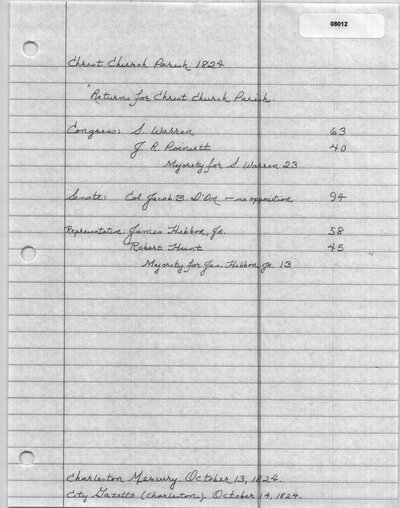 08012
Christ Church Parish 1824
"Returns for Christ Church Parish.
Congress: S. Warren 63
J. R. Poinsett 40
Majority for S. Warren 23
Senate: Col Jacob B. I'On - no opposition 94
Representative: James Hibben, Jr. 58
Robert Hunt 45 "
Majority for Jas. Hibben Jr. 13
Charleston Mercury. October 13, 1824.
City Gazette (Charleston). October 14, 1824.